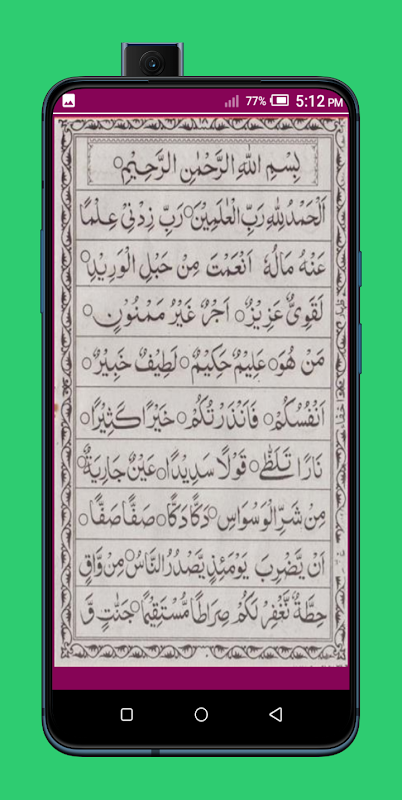 77% 5:12 PM
١٨
بِسْمِ اللهِ الرَّحْمٰنِ الرَّحِيْمِ○
اَلْحَمْدُ لِلّٰهِ رَبِّ الْعٰلَمِيْنَ○ رَبِّ زِدْنِيْ عِلْمًا
عَنْهُ مَالُهٗ اَنْعَمْتَ مِنْ حَبْلِ الْوَرِيْدِ○
لَقَوِيٌّ عَزِيْزٌ○ اَجْرٌ غَيْرُ مَمْنُوْنٍ○
مَنْ هُوَ○ عَلِيْمٌ حَكِيْمٌ○ لَطِيْفٌ خَبِيْرٌ○
اَنْفُسُكُمْ○ فَاَنْذَرْتُكُمْ○ خَيْرًا كَثِيْرًا○
نَارًا تَلَظّٰى○ قَوْلًا سَدِيْدًا○ عَيْنٌ جَارِيَةٌ○
مِنْ شَرِّ الْوَسْوَاسِ○ دَكًّا دَكًّا○ صَفًّا صَفًّا○
اَنْ يَّضْرِبَ يَوْمَئِذٍ يَّصْدُرُ النَّاسُ○ مِنْ وَّاقٍ
حِطَّةٌ نَّغْفِرْ لَكُمْ صِرَاطًا مُّسْتَقِيْمًا○ جَنّٰتٍ وَّ